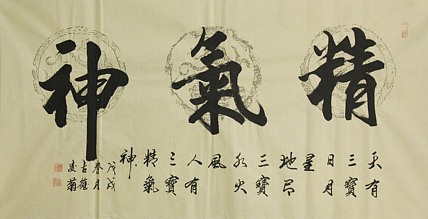 精氣神
天有
三寶
日月
星
地有
三寶
水火
風
人有
三寶
精氣
神
戊戌
春月